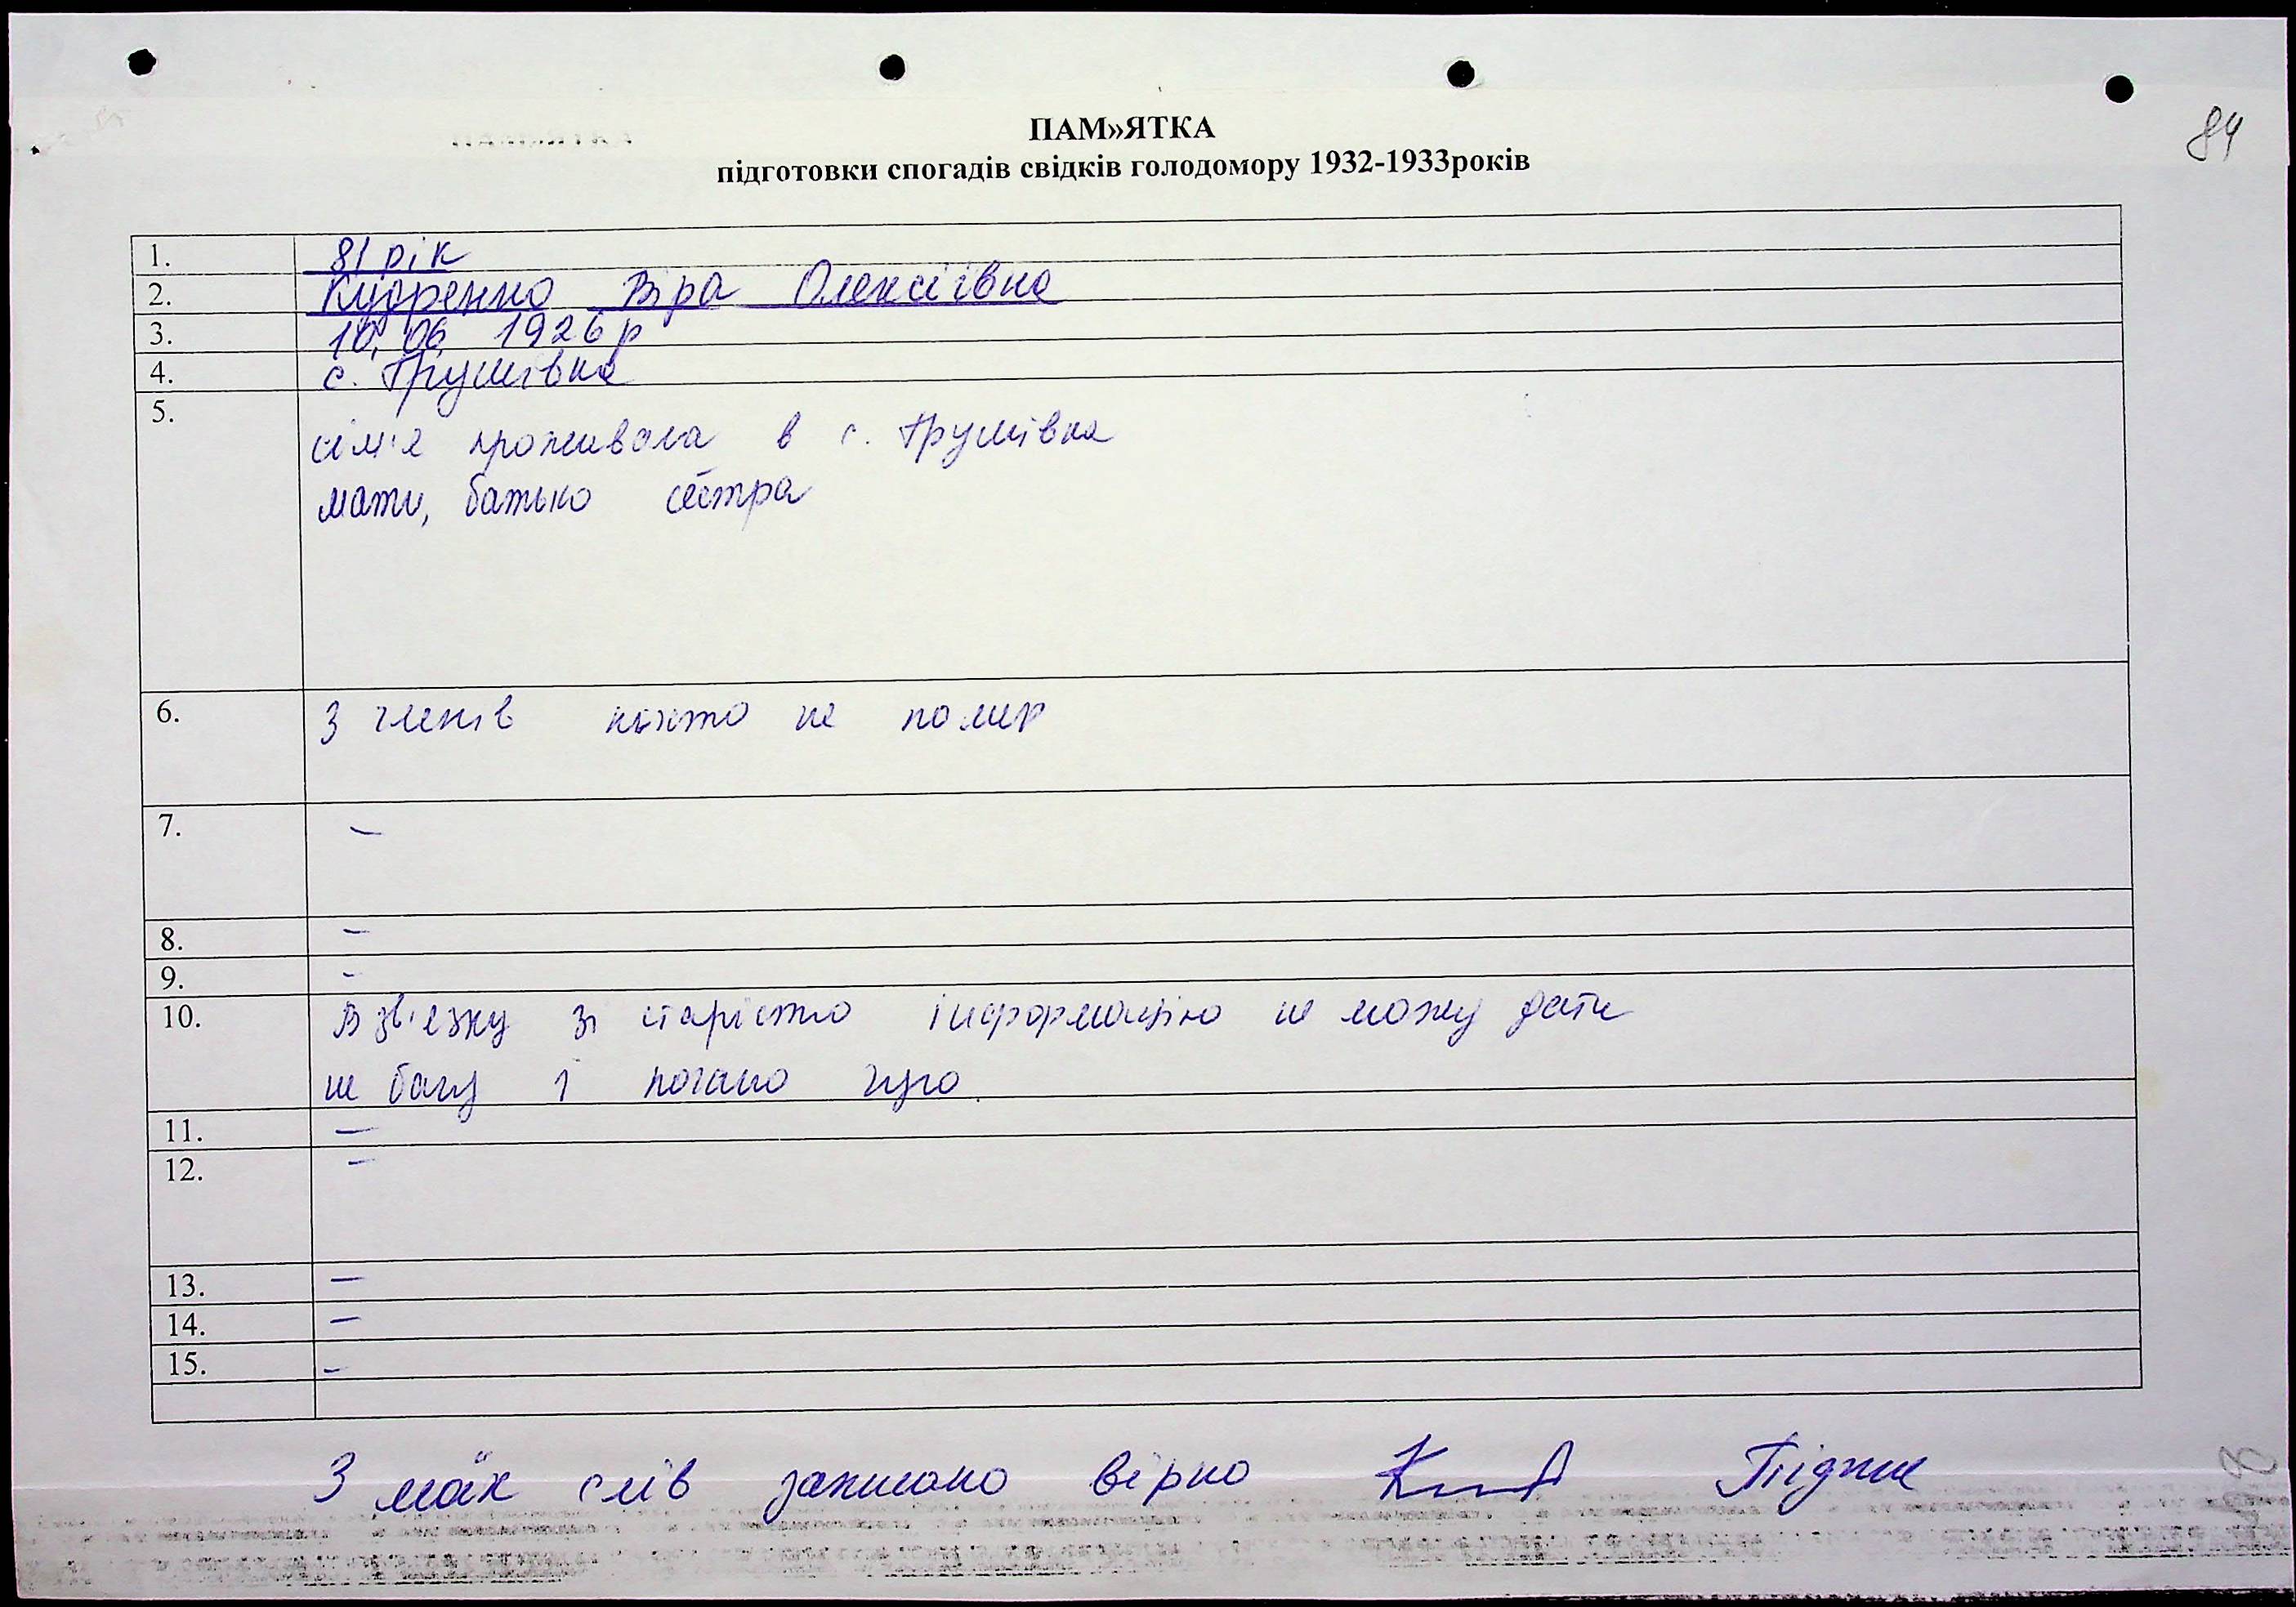 84
ПАМ»ЯТКА
підготовки спогадів свідків голодомору 1932-1933років
1. 81 рік
2. Віра Олексіївна
3. 10, 06 1926 р
4. с. Грушівка
5.
сім'я проживала в с. Грушівка
мати, батько сестра
6. З членів ніхто не помер
7. –
8. –
9. -
10. В зв'язку зі старістю інформацію не можу дати
не бачу і погано чую.
11. –
12. –
13. –
14. –
15. –
З моїх слів записано вірно